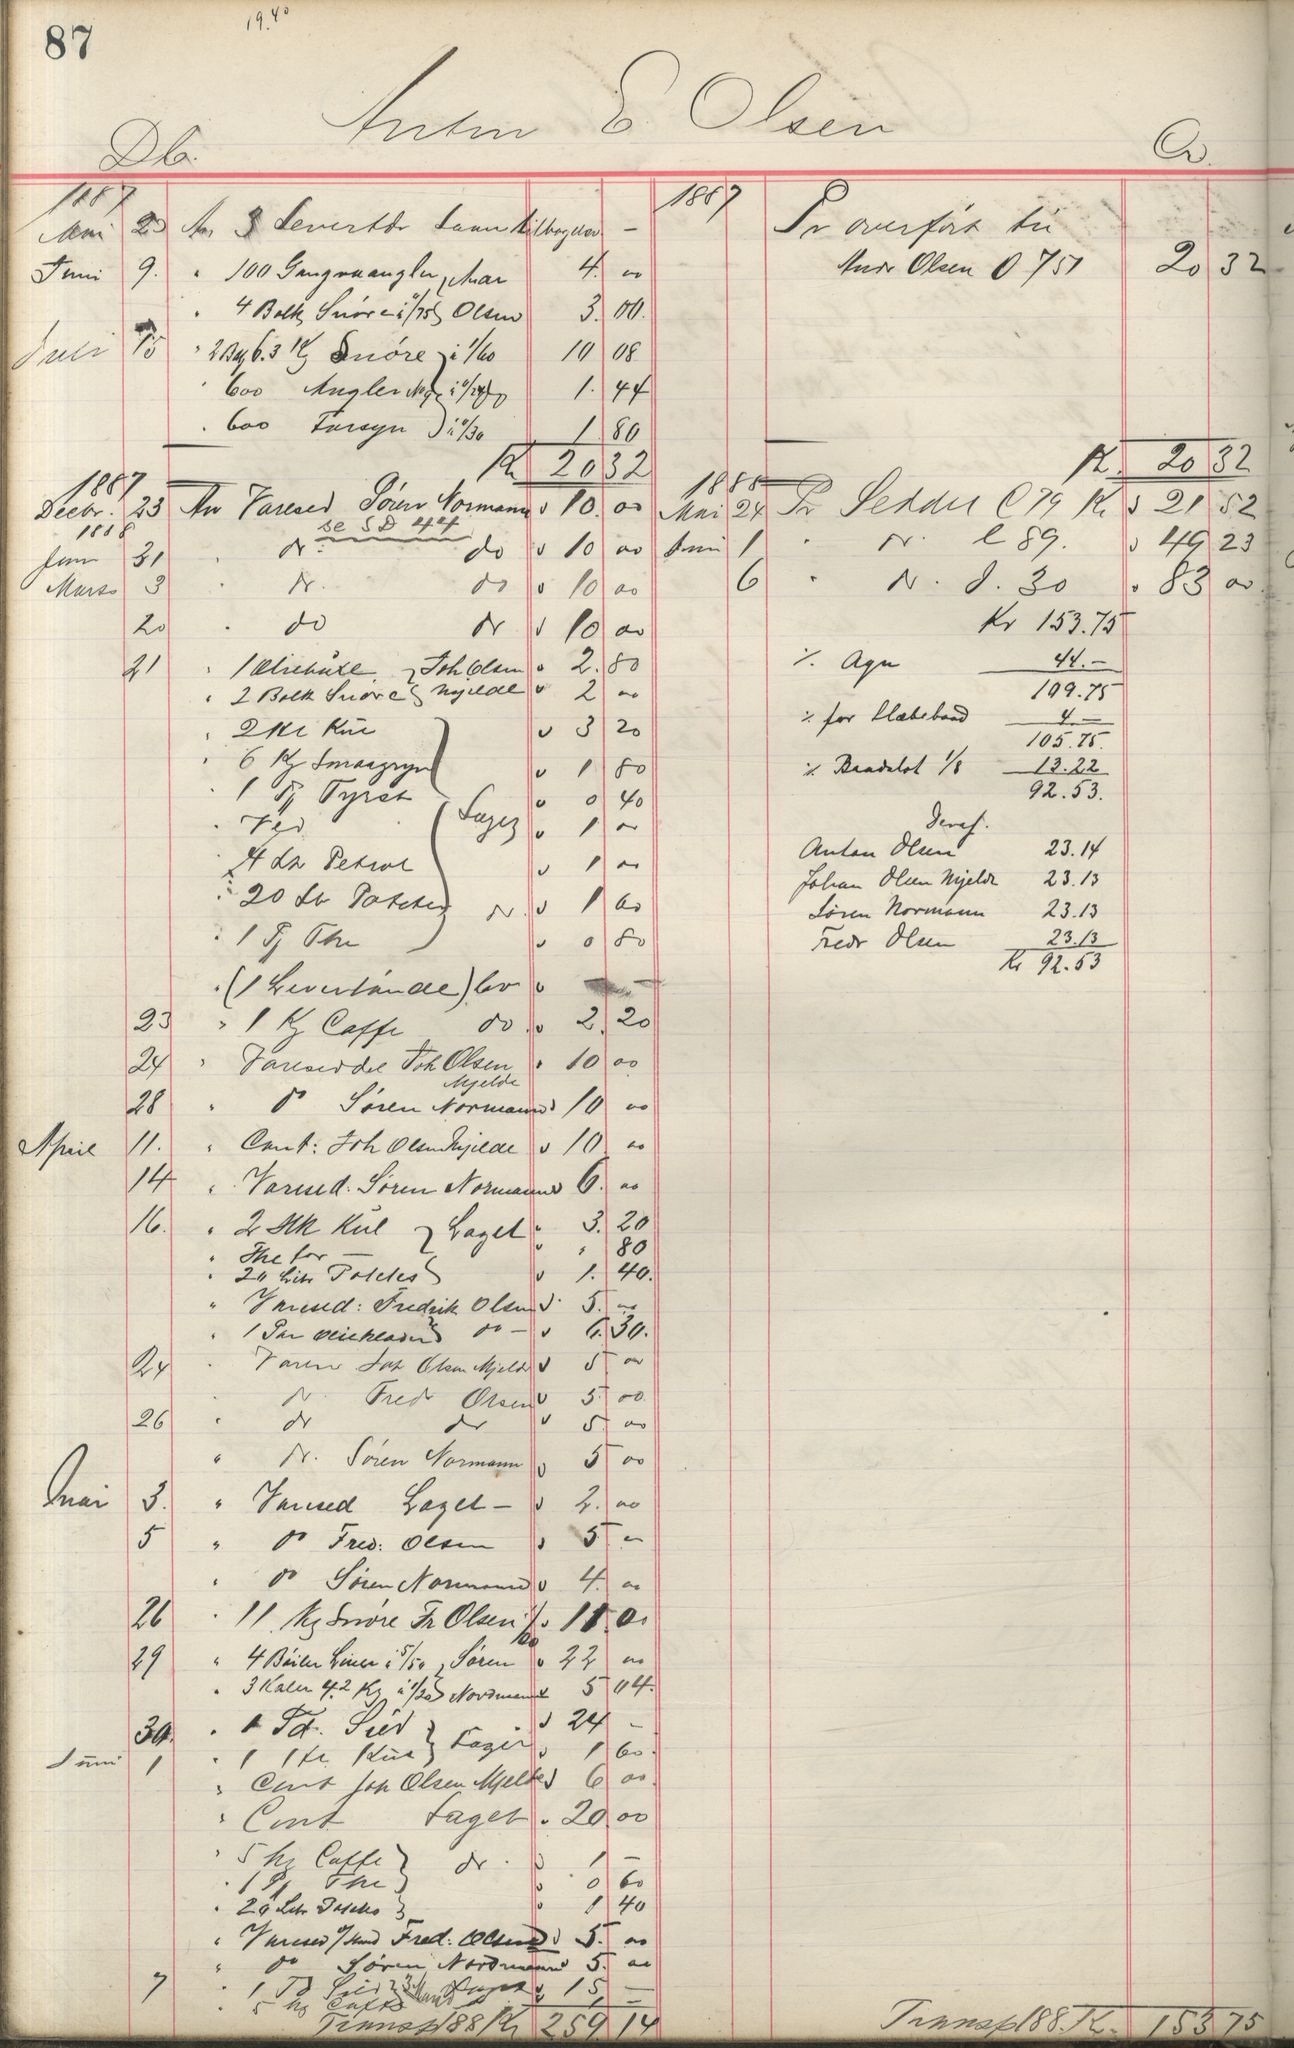 87
19.40
Anton E. Olsen
Db. Cr.
1887 1887
Mai 23 An 3 Levertdr Pr overfört til
Juni 9. " 100 Gangvaangler Andr Olsen 4. 00 Andr Olsen O 751 20 32
" 4 Bolk Snöre i /75 Olsen 3. 00.
Juli 15 " 2 6.3 Kg Snöre i 1/60 10 08
" 600 Angler 1. 44
" 600 Forsyn i 0/30 1. 80
Kr 20 32 Kr. 20 32
1887 1888
Decbr. 23 An Varesed Sören Normann " 10. 00 Mai 24 Pr Seddel C 79 Kr " 21 52
se S D 44
1888
Jan 31 " do do " 10 00 Juni 1 " do C 89. " 49 23
Marts 3 " do do " 10 00 6 " do d. 30 " 83 00.
20 " do do " 10 00 Kr 153.75
21 " 1 Joh Olsen " 2. 80 ٪ Agn 44.—
" 2 Bolk Snöre Mjelde " 2 00 109.75
" 2 Kul " 3 20 ٪ for 4.—
105.75.
" 6 Kg Smaagryn " 1 80 ٪ Baadslot 1/8 13.22
" 1 Pj Fyrst " 0 40 92.53.
" Ved Laget " 1 00 deraf.
" 4 Ltr Petrol " 1 00 Anton Olsen 23.14
" 20 Ltr Poteter do " 1 60 Johan Olsen Mjelde 23.13
Sören Normann 23.13
" 1 Pj The " 0 80 Fredr Olsen 23.13
Kr 92.53
" (1 Levertönde) lev "
23 " 1 Kg Caffe do " 2. 20
24 " Vareseddel Joh Olsen Mjelde " 10 00
28 " do Sören Normann " 10 00
April 11. " Cont: Joh Olsen Mjelde " 10 00
14 " Varesed: Sören Normann " 6. 00
16. " 2 Stk Kul Laget " 3. 20
" The for — " " 80
" 20 Litr Potetes " 1. 40.
" Varesed: Fredrik Olsen " 5. 00
" 1 Par do — " 6. 30.
24 " Varesed Joh Olsen Mjelde " 5 00
" do Fredr Olsen " 5 00
26 " do do " 5. 00
" do. Sören Normann " 5 00
Mai 3. " Varesed Laget — " 2. 00
5 " do Fred: Olsen " 5 —
" do Sören Normann " 4. 00
26 " 11 Kg Snöre Fr Olsen " 11. 00
29 " 4 Böiler Liner i 5/50 Sören " 22 00
" 3 Kaler 4.2 Kg i 1/20 Nordmann " 5 04.
30. " 1 Td. Sild Laget " 24 —
Juni 1 " 1 Kul " 1 60.
" Cont Joh Olsen Mjelde " 6 00.
" Cont Laget " 20. 00
" 5 hg Caffe do. " 1 —
" 1 Pj The " 0 60
" 20 Ltr Potetes " 1 40
" Varesed Fred: Olsen " 5. 00
" do Sören Nordmann " 5. 00
7 " 1 Td Sild Laget " 15 —
" 5 hg Caffe " 1 —
Transp 188 Kr 259 14 Transp 188. Kr. 153 75